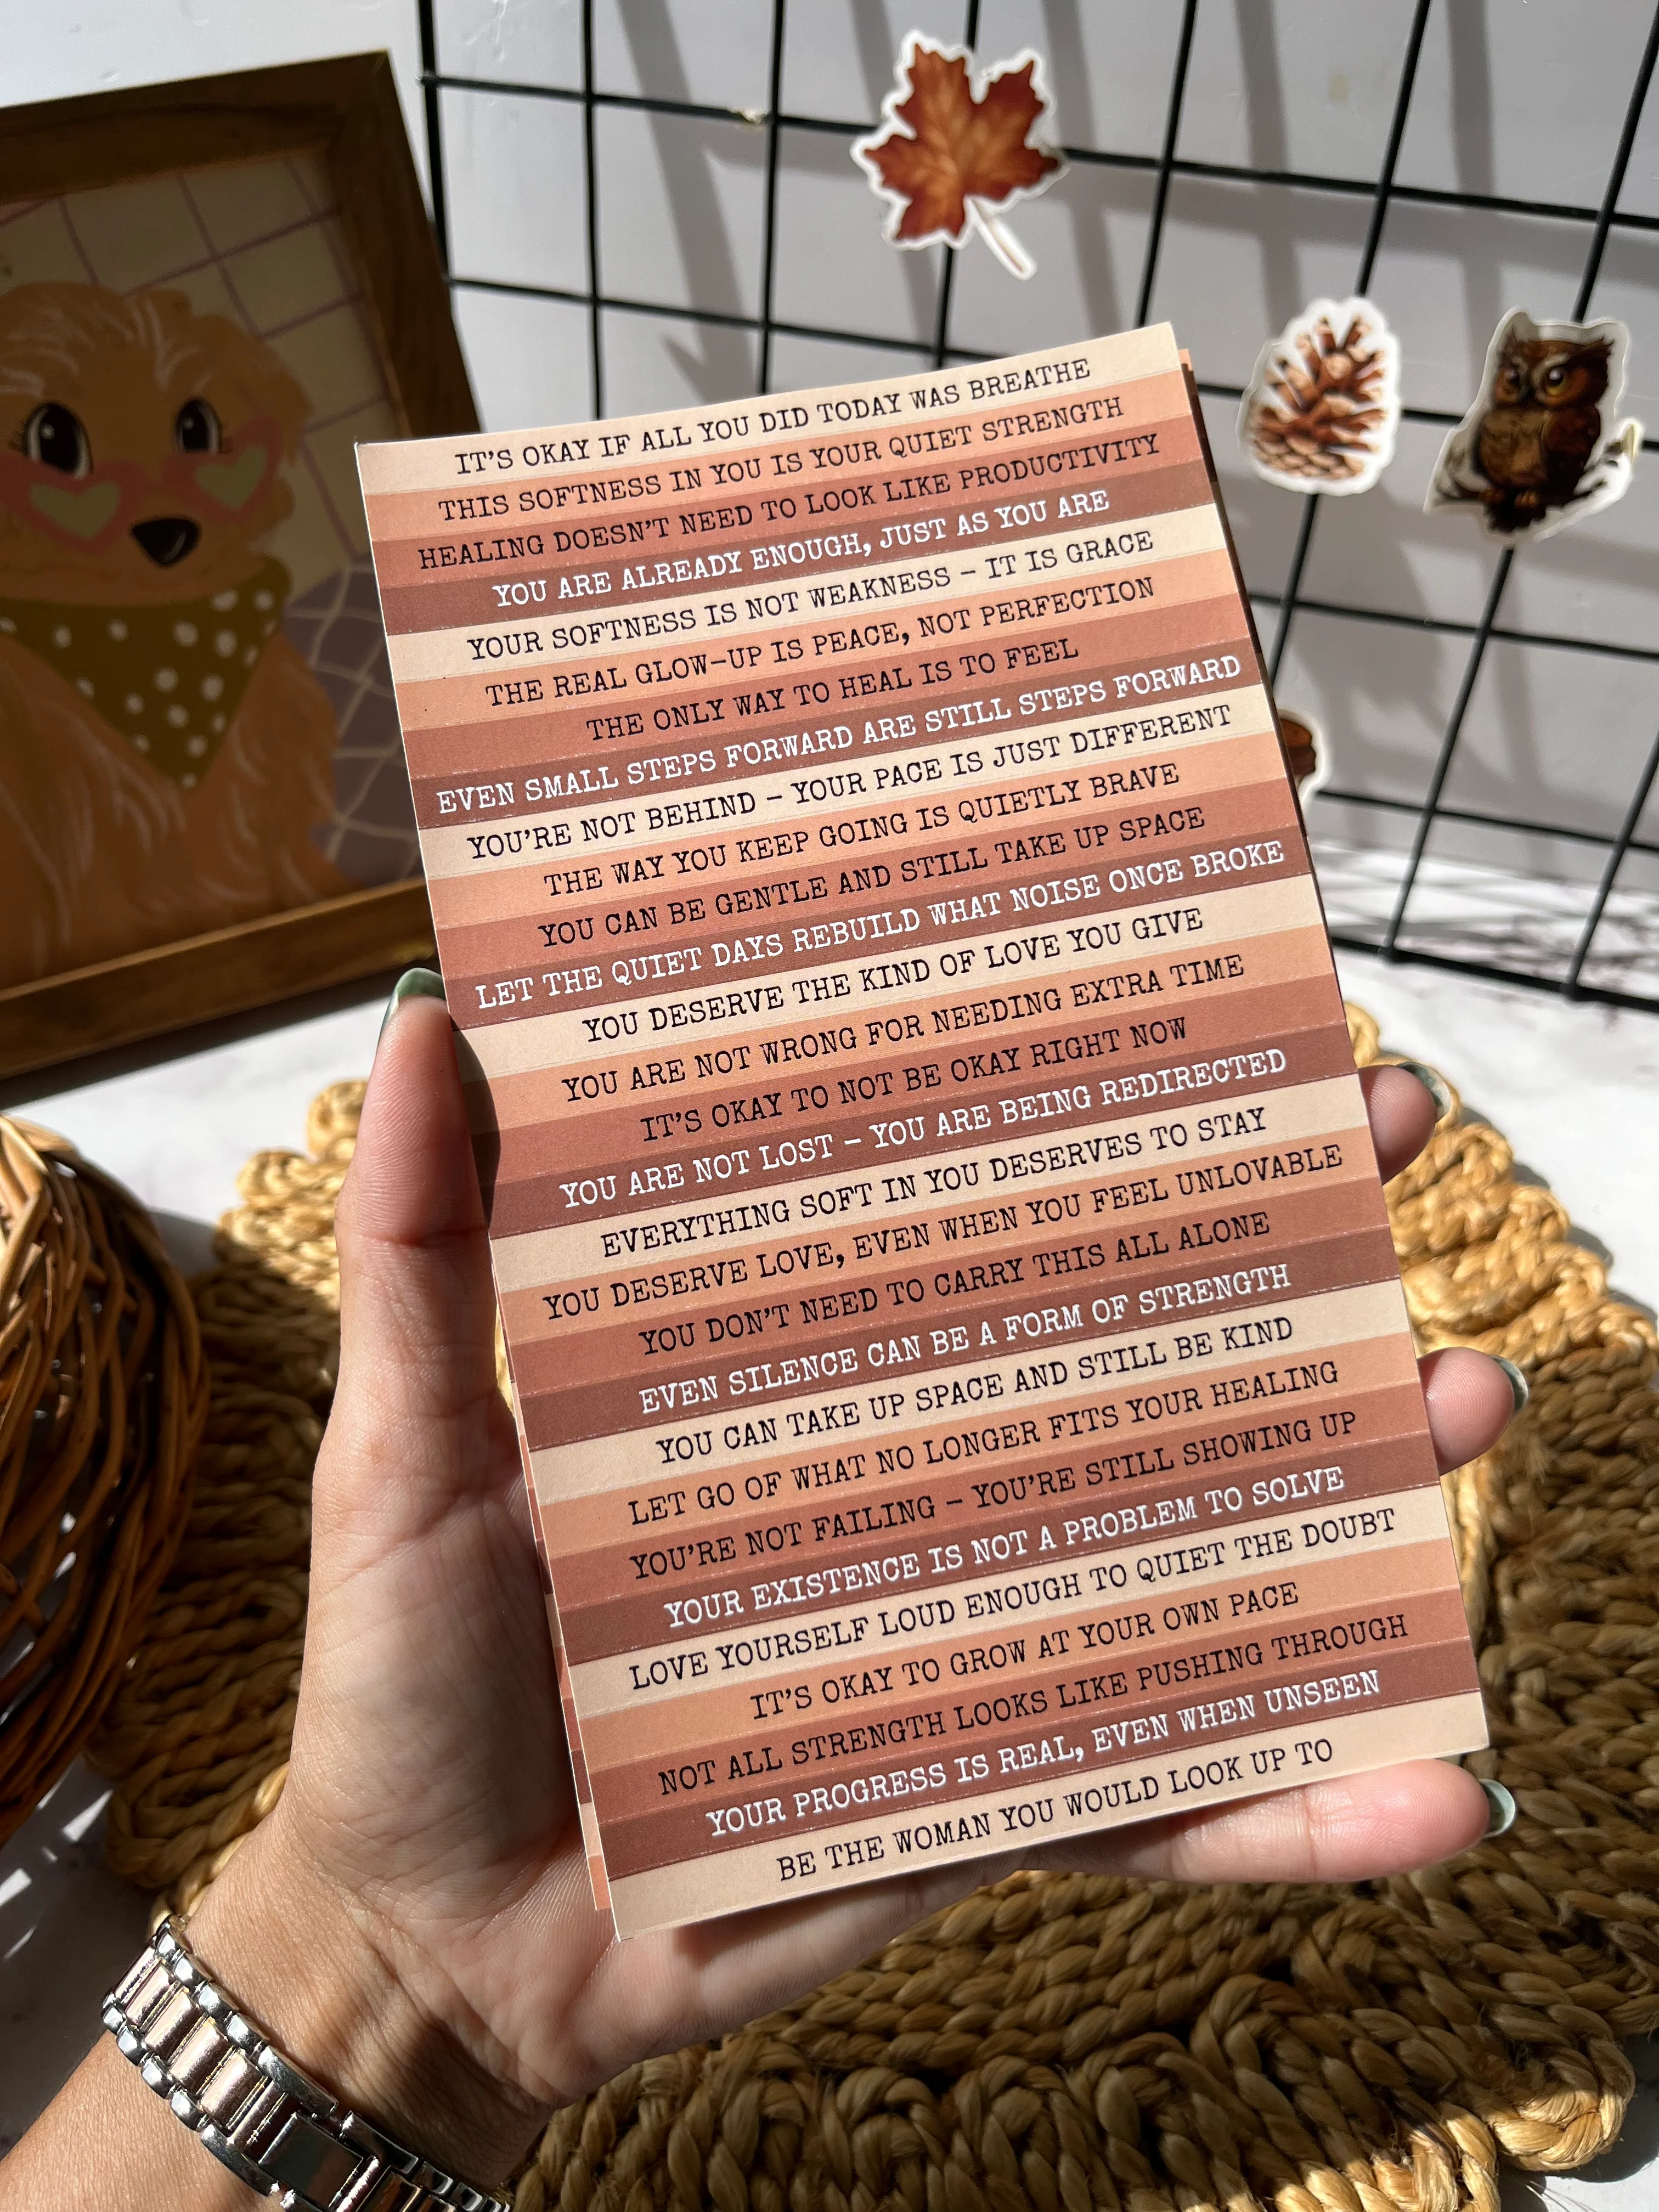 IT'S OKAY IF ALL YOU DID TODAY WAS BREATHE
THIS SOFTNESS IN YOU IS YOUR QUIET STRENGTH
HEALING DOESN'T NEED TO LOOK LIKE PRODUCTIVITY
YOU ARE ALREADY ENOUGH, JUST AS YOU ARE
YOUR SOFTNESS IS NOT WEAKNESS – IT IS GRACE
THE REAL GLOW-UP IS PEACE, NOT PERFECTION
THE ONLY WAY TO HEAL IS TO FEEL
EVEN SMALL STEPS FORWARD ARE STILL STEPS FORWARD
YOU'RE NOT BEHIND – YOUR PACE IS JUST DIFFERENT
THE WAY YOU KEEP GOING IS QUIETLY BRAVE
YOU CAN BE GENTLE AND STILL TAKE UP SPACE
LET THE QUIET DAYS REBUILD WHAT NOISE ONCE BROKE
YOU DESERVE THE KIND OF LOVE YOU GIVE
YOU ARE NOT WRONG FOR NEEDING EXTRA TIME
IT'S OKAY TO NOT BE OKAY RIGHT NOW
YOU ARE NOT LOST – YOU ARE BEING REDIRECTED
EVERYTHING SOFT IN YOU DESERVES TO STAY
YOU DESERVE LOVE, EVEN WHEN YOU FEEL UNLOVABLE
YOU DON'T NEED TO CARRY THIS ALL ALONE
EVEN SILENCE CAN BE A FORM OF STRENGTH
YOU CAN TAKE UP SPACE AND STILL BE KIND
LET GO OF WHAT NO LONGER FITS YOUR HEALING
YOU'RE NOT FAILING – YOU'RE STILL SHOWING UP
YOUR EXISTENCE IS NOT A PROBLEM TO SOLVE
LOVE YOURSELF LOUD ENOUGH TO QUIET THE DOUBT
IT'S OKAY TO GROW AT YOUR OWN PACE
NOT ALL STRENGTH LOOKS LIKE PUSHING THROUGH
YOUR PROGRESS IS REAL, EVEN WHEN UNSEEN
BE THE WOMAN YOU WOULD LOOK UP TO